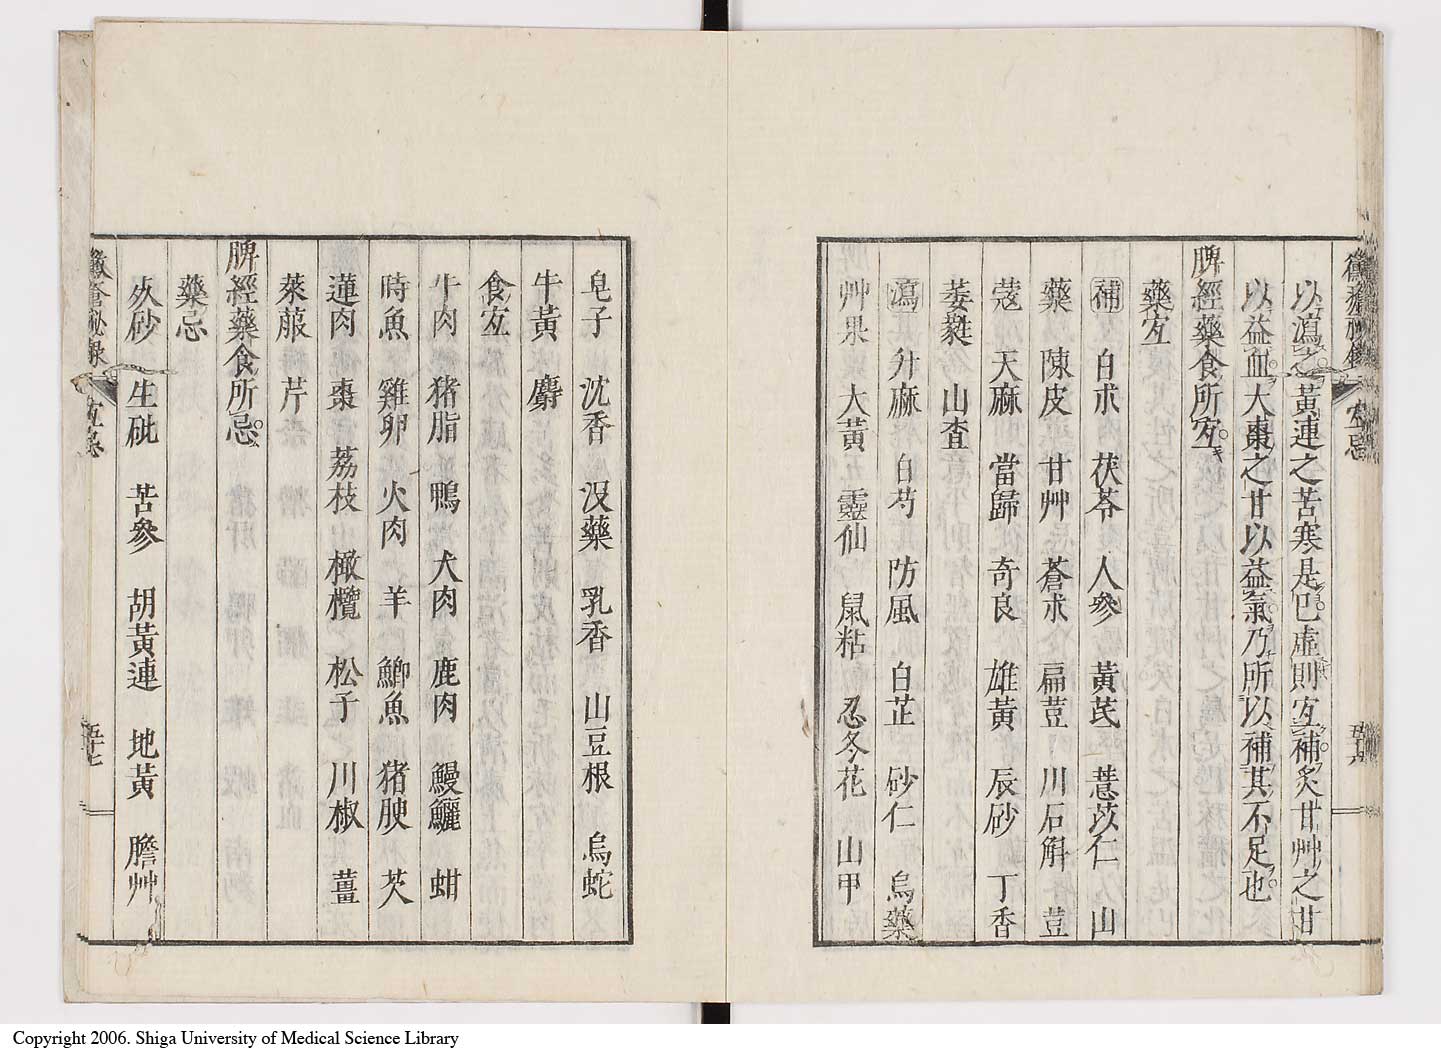 以瀉之黃連之苦寒是巳虛則宐補炙甘艸之甘
以益血大棗之甘以益氣乃所以補其不足也
脾經藥食所宐
藥宐
補 白朮 茯苓 人參 黃芪 薏苡仁 山
藥 陳皮 甘艸 蒼朮 扁荳 川石斛 荳
蔻 天麻 當歸 竒良 雄黃 辰砂 丁香
萎蕤 山査
瀉 升麻 白芍 防風 白芷 砂仁 烏藥
艸果 大黃 靈仙 鼠粘 忍冬花 山甲
皂子 沈香 沒藥 乳香 山豆根 烏蛇
牛黃 麝
食宐
牛肉 猪脂 鴨 犬肉 鹿肉 鰻鱺 蚶
時魚 雞卵 火肉 羊 鯽魚 猪腴 芡
蓮肉 棗 荔枝 橄欖 松子 川椒 薑
萊菔 芹
脾經藥食所忌
藥忌
火砂 生砒 苦參 胡黃連 地黃 膽艸
黴瘡秘録 宐忌 五十七
Copyright 2006. Shiga University of Medical Science Library